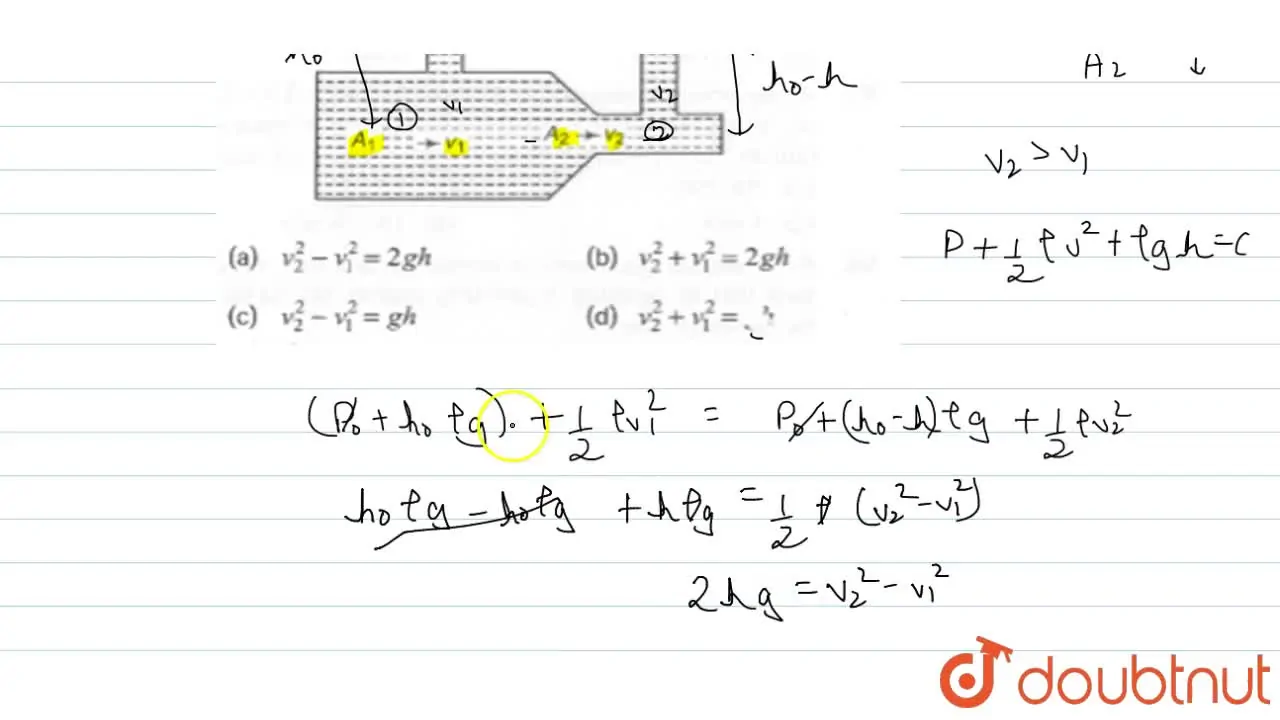 A2 ↓
h0-h
v1 v2
①
A1 → v1 - A2 → v2 ②
v2 > v1
P + 1/2 ρv² + ρgh = C
(a) v₂² − v₁² = 2gh (b) v₂² + v₁² = 2gh
(c) v₂² − v₁² = gh (d) v₂² + v₁² =
(P0 + h0 ρg) + 1/2 ρv₁² = P0 + (h0-h)ρg + 1/2 ρv₂²
h0ρg - h0ρg + hρg = 1/2 ρ (v₂² - v₁²)
2hg = v₂² - v₁²
doubtnut